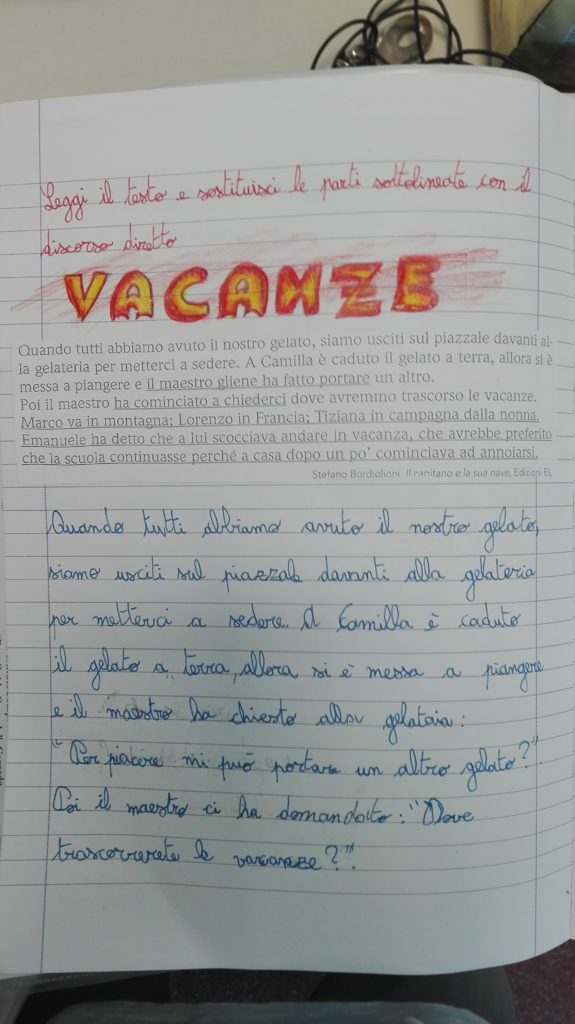 Leggi il testo e sostituisci le parti sottolineate con il
discorso diretto
VACANZE
Quando tutti abbiamo avuto il nostro gelato, siamo usciti sul piazzale davanti al-
la gelateria per metterci a sedere. A Camilla è caduto il gelato a terra, allora si è
messa a piangere e il maestro gliene ha fatto portare un altro.
Poi il maestro ha cominciato a chiederci dove avremmo trascorso le vacanze.
Marco va in montagna; Lorenzo in Francia; Tiziana in campagna dalla nonna.
Emanuele ha detto che a lui scocciava andare in vacanza, che avrebbe preferito
che la scuola continuasse perché a casa dopo un po' cominciava ad annoiarsi.
Stefano Bordiglioni, Il capitano e la sua nave, Edizioni EL
Quando tutti abbiamo avuto il nostro gelato,
siamo usciti sul piazzale davanti alla gelateria
per metterci a sedere. A Camilla è caduto
il gelato a terra, allora si è messa a piangere
e il maestro ha chiesto alla gelataia:
"Per piacere mi può portare un altro gelato?".
Poi il maestro ci ha domandato: "Dove
trascorrerete le vacanze?".